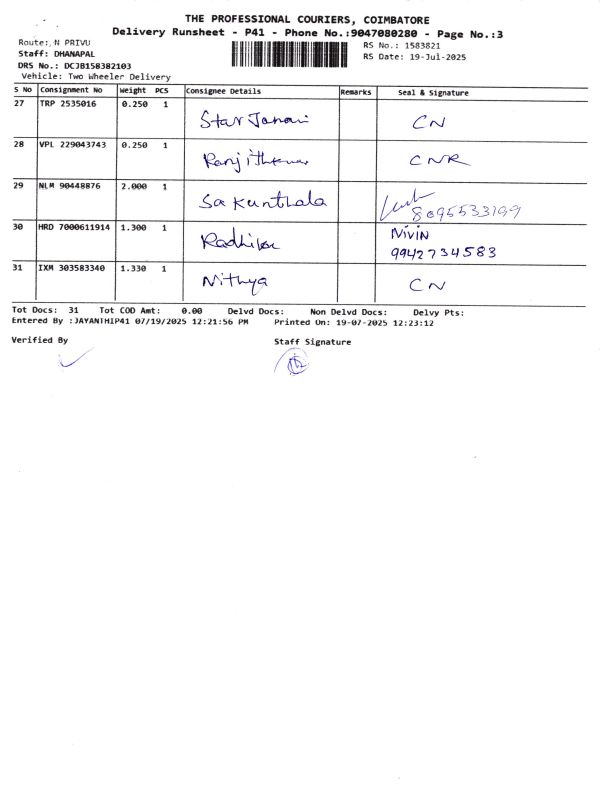 THE PROFESSIONAL COURIERS, COIMBATORE
Delivery Runsheet - P41 - Phone No.:9047080280 - Page No.:3
Route: N PRIVU
RS No.: 1583821
Staff: DHANAPAL
RS Date: 19-Jul-2025
DRS No.: DCJB158382103
Vehicle: Two Wheeler Delivery
S No Consignment No Weight PCS Consignee Details Remarks Seal & Signature
27 TRP 2535016 0.250 1 Star Janani CN
28 VPL 229043743 0.250 1 Ranjithkumar CNR
29 NLM 90448876 2.000 1 Sakunthala 8095533199
30 HRD 7000611914 1.300 1 Radhika Nivin
9942734583
31 IXM 303583340 1.330 1 Nithya CN
Tot Docs: 31 Tot COD Amt: 0.00 Delvd Docs: Non Delvd Docs: Delvy Pts:
Entered By :JAYANTHIP41 07/19/2025 12:21:56 PM Printed On: 19-07-2025 12:23:12
Verified By Staff Signature